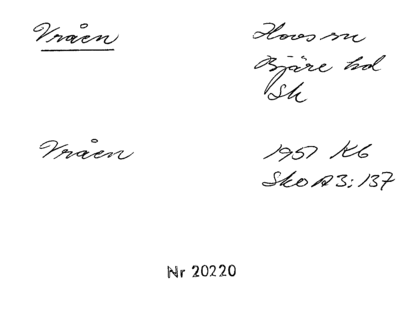 Vråen
Hovs sn
Bjäre hd
Sk
Vråen
1951 Kb
Sko A3:137
Nr 20220